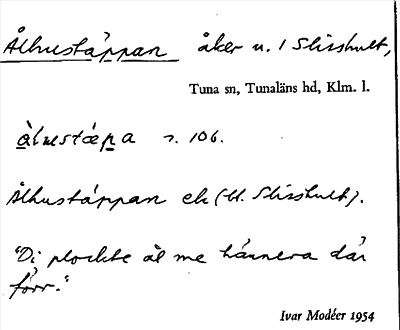 Ålhustäppan åker u. 1 Slisshult,
Tuna sn, Tunaläns hd, Klm. l.
àlustæpa s. 106.
Ålhustäppan ek (bl. Slisshult).
"Di plockte ål me hännera där
förr."
Ivar Modéer 1954